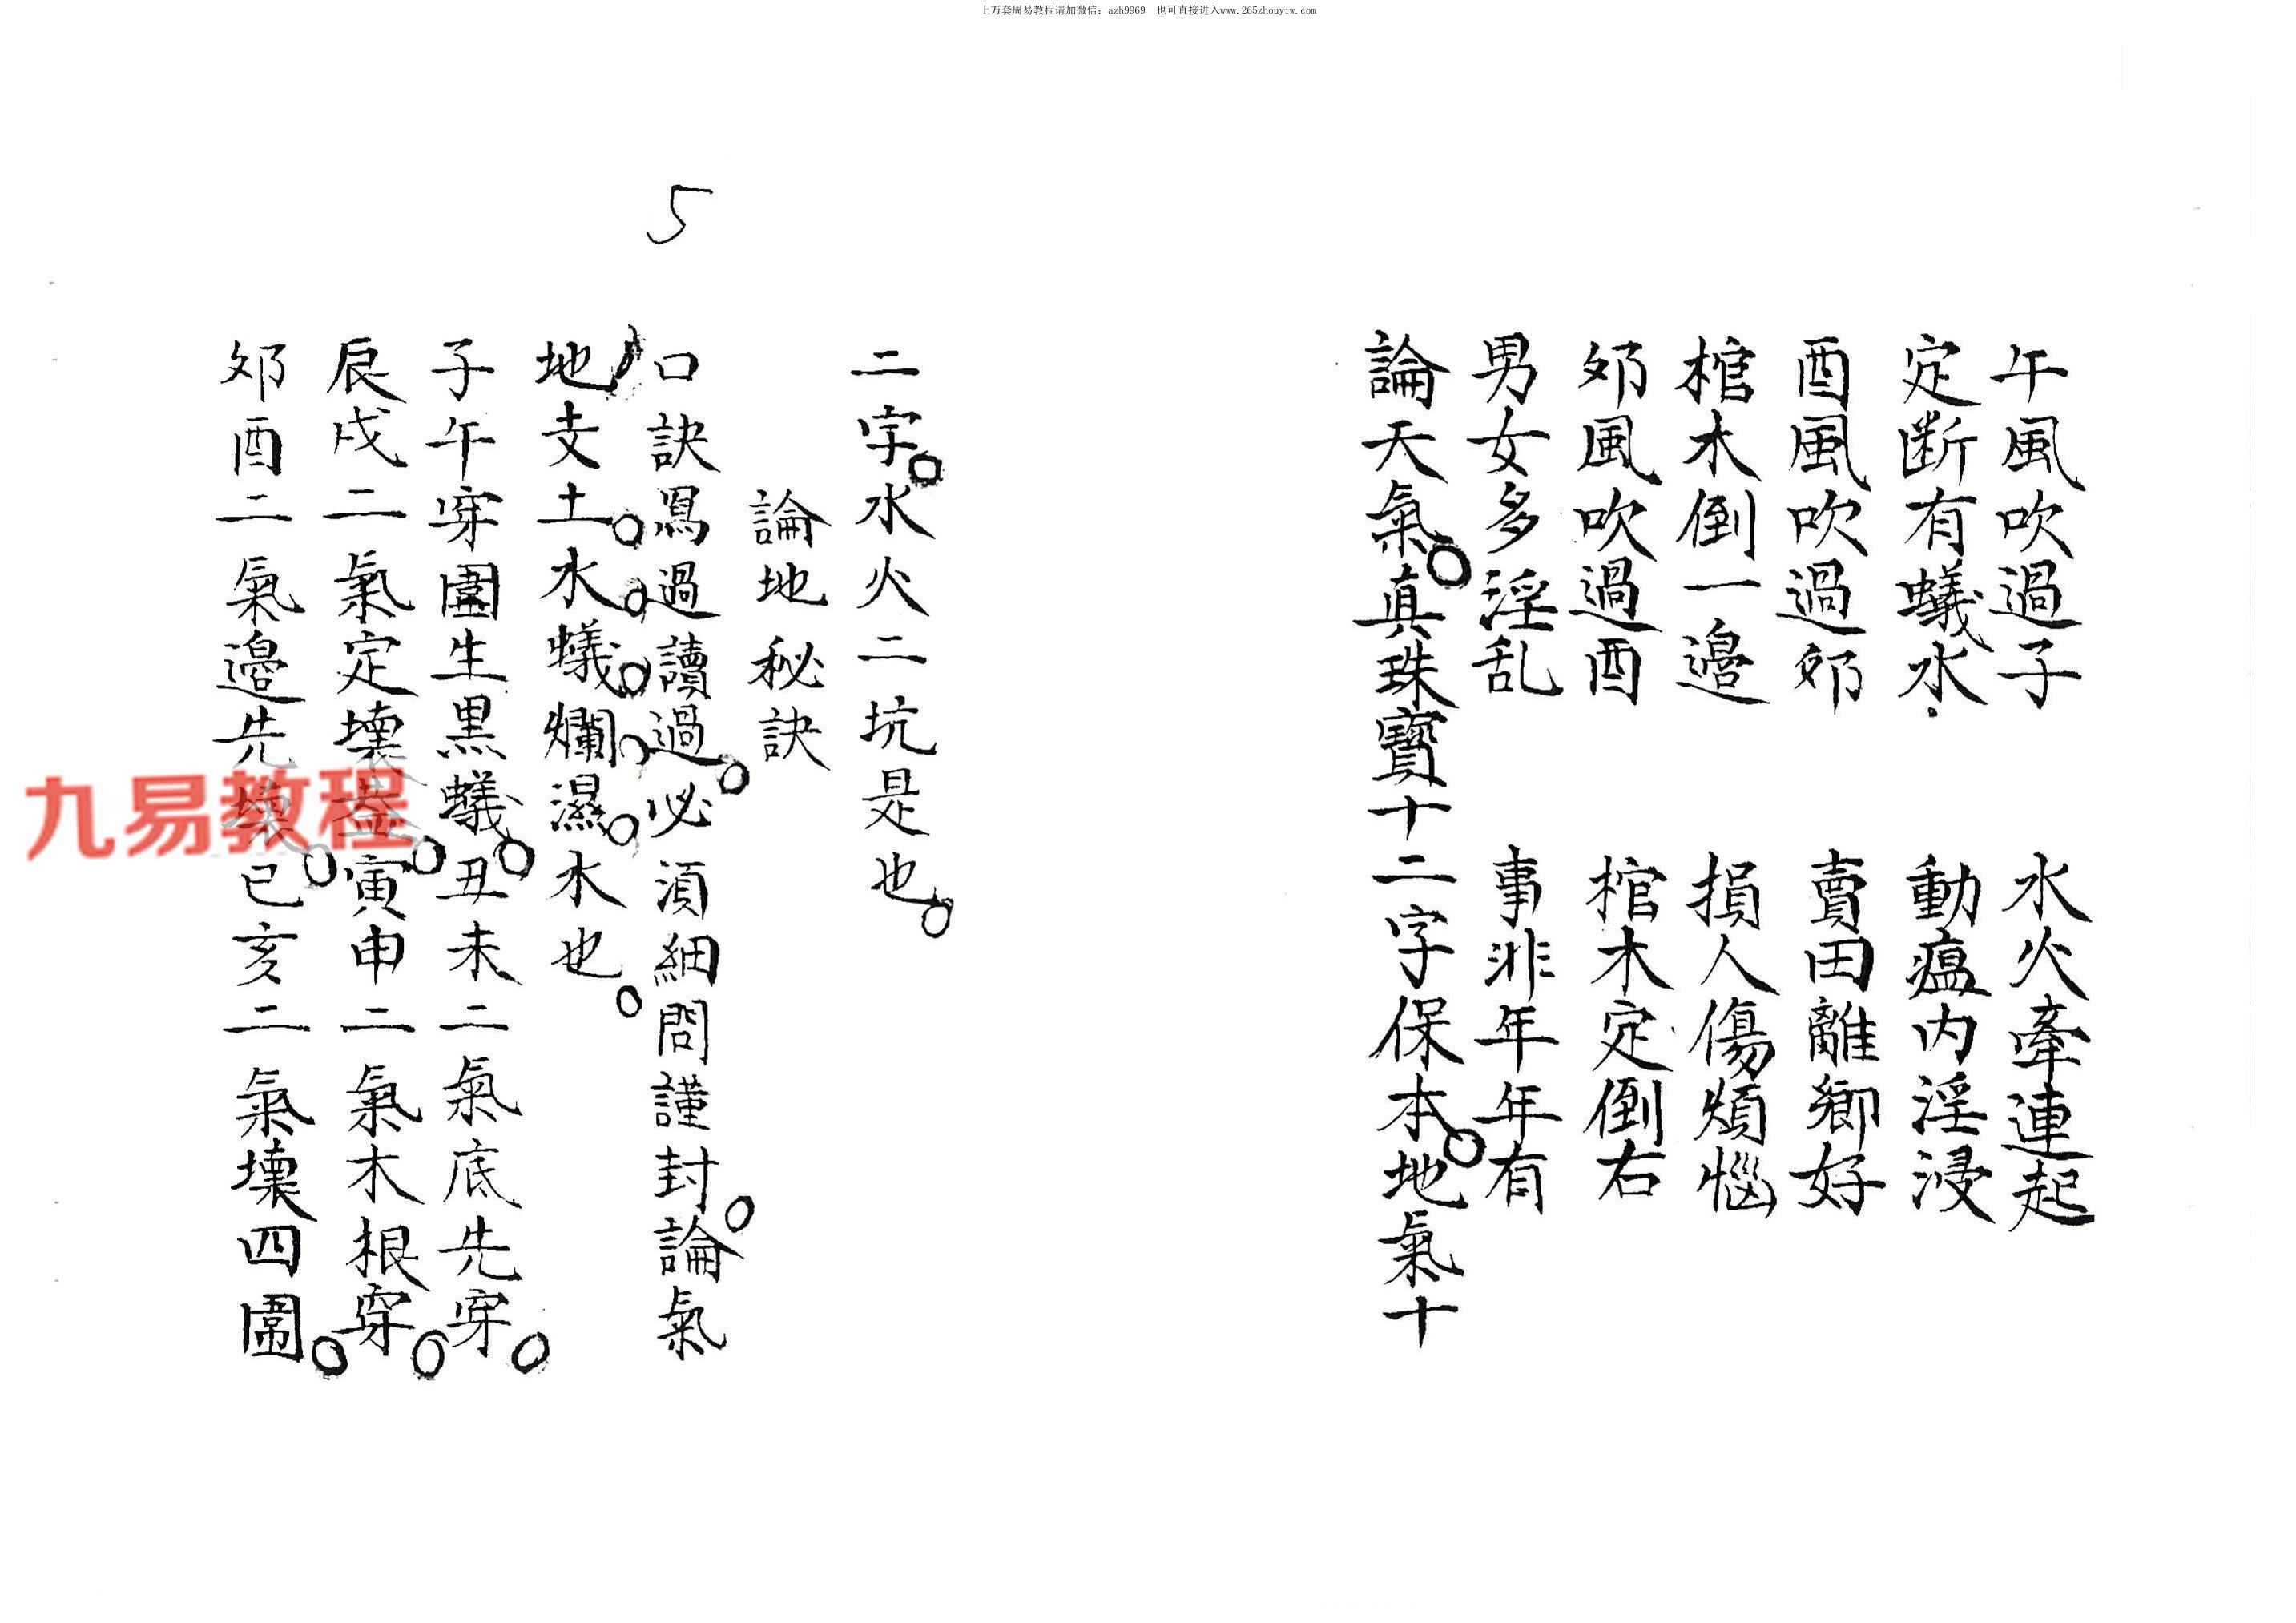 上万套周易教程请加微信：azh9969　也可直接进入www.265zhouyiw.com
午風吹過子　水火牽連起
定断有蟻水。　動瘟内淫浸
酉風吹過夘　賣田離鄉好
棺木倒一邉　損人傷煩惱
夘風吹過酉　棺木定倒右
男女多淫乱　事非年年有
論天氣。真珠寶十二字保本。地氣十
二字。水火二坑是也。
論地秘訣
5
口訣寫過讀過。必須細問謹封。論氣
地支土。水。蟻。爛。濕。水也。
子午穿圍生黑蟻。丑未二氣底先穿。
辰戌二氣定壞盡。寅申二氣木根穿。
夘酉二氣邉先壞。巳亥二氣壞四圍。
九易教程